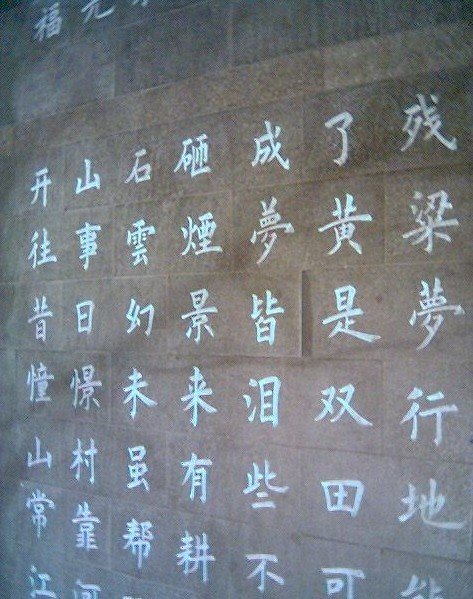 福元
开山石砸成了残
往事雲煙夢黄粱
昔日幻景皆是夢
憧憬未来泪双行
山村虽有些田地
常靠帮耕不可能
江河